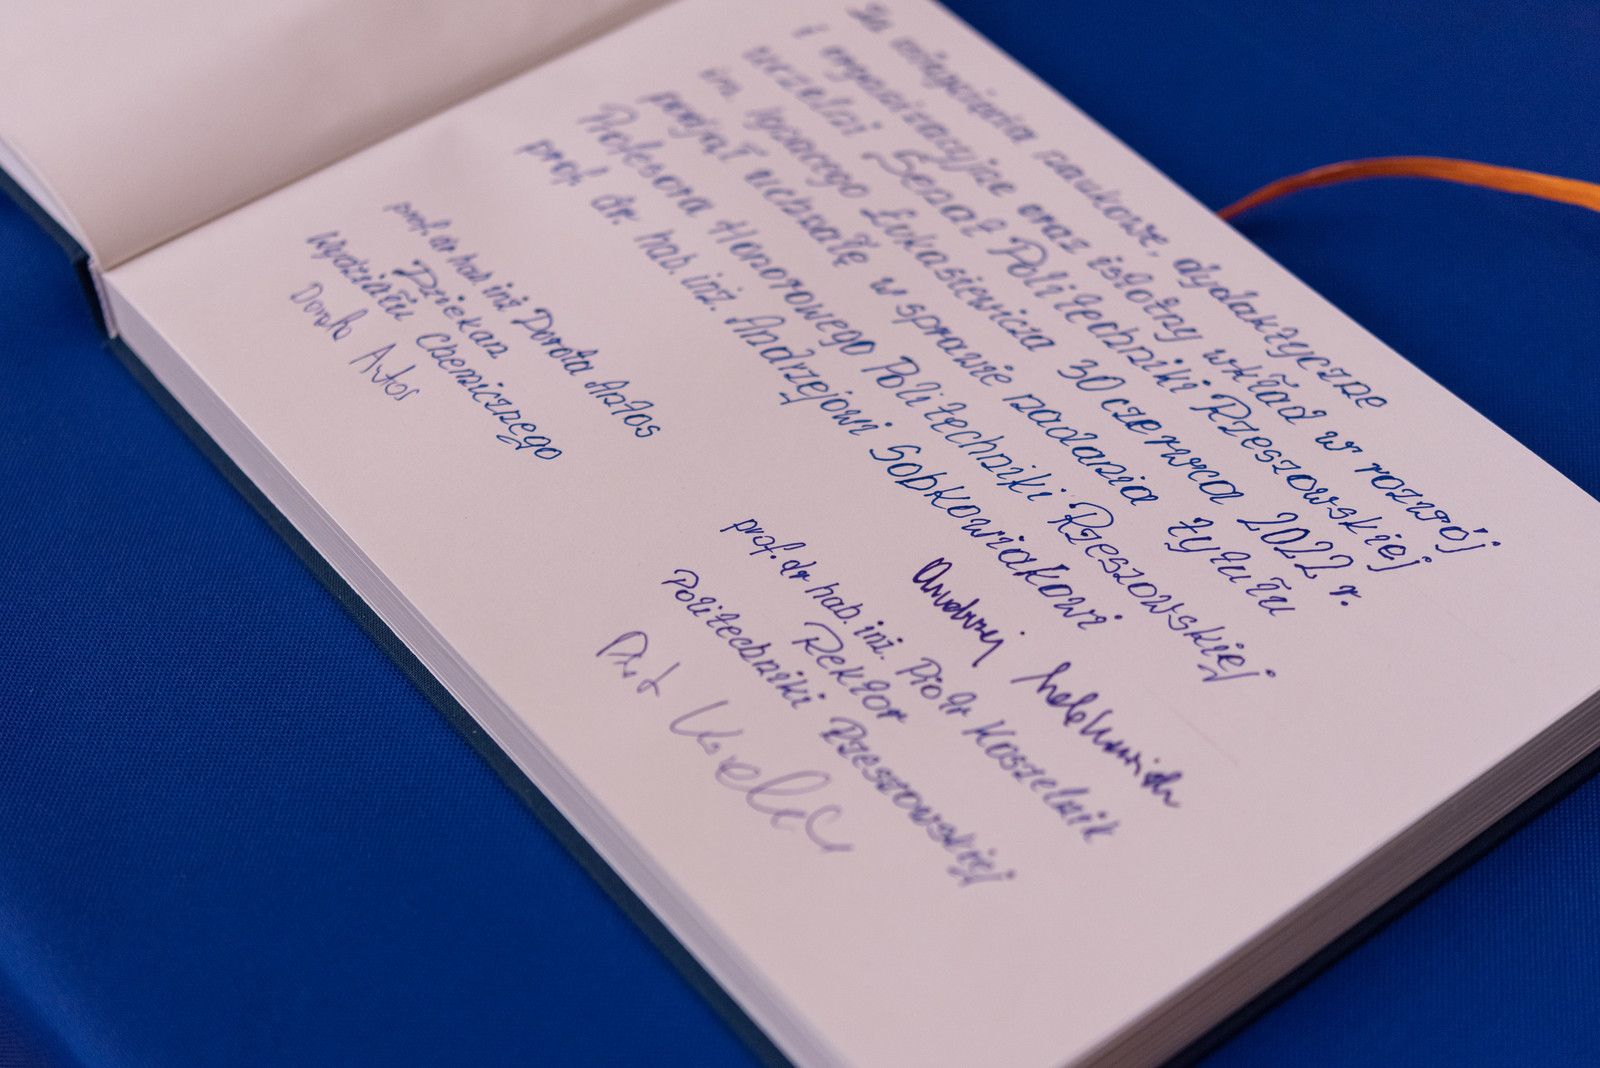 Za osiągnięcia naukowe, dydaktyczne
i organizacyjne oraz istotny wkład w rozwój
uczelni Senat Politechniki Rzeszowskiej
im. Ignacego Łukasiewicza 30 czerwca 2022 r.
podjął uchwałę w sprawie nadania tytułu
Profesora Honorowego Politechniki Rzeszowskiej
prof. dr. hab. inż. Andrzejowi Sobkowiakowi
Andrzej Sobkowiak
prof. dr hab. inż. Dorota Antos
Dziekan
Wydziału Chemicznego
Dorota Antos
prof. dr hab. inż. Piotr Koszelnik
Rektor
Politechniki Rzeszowskiej
Piotr